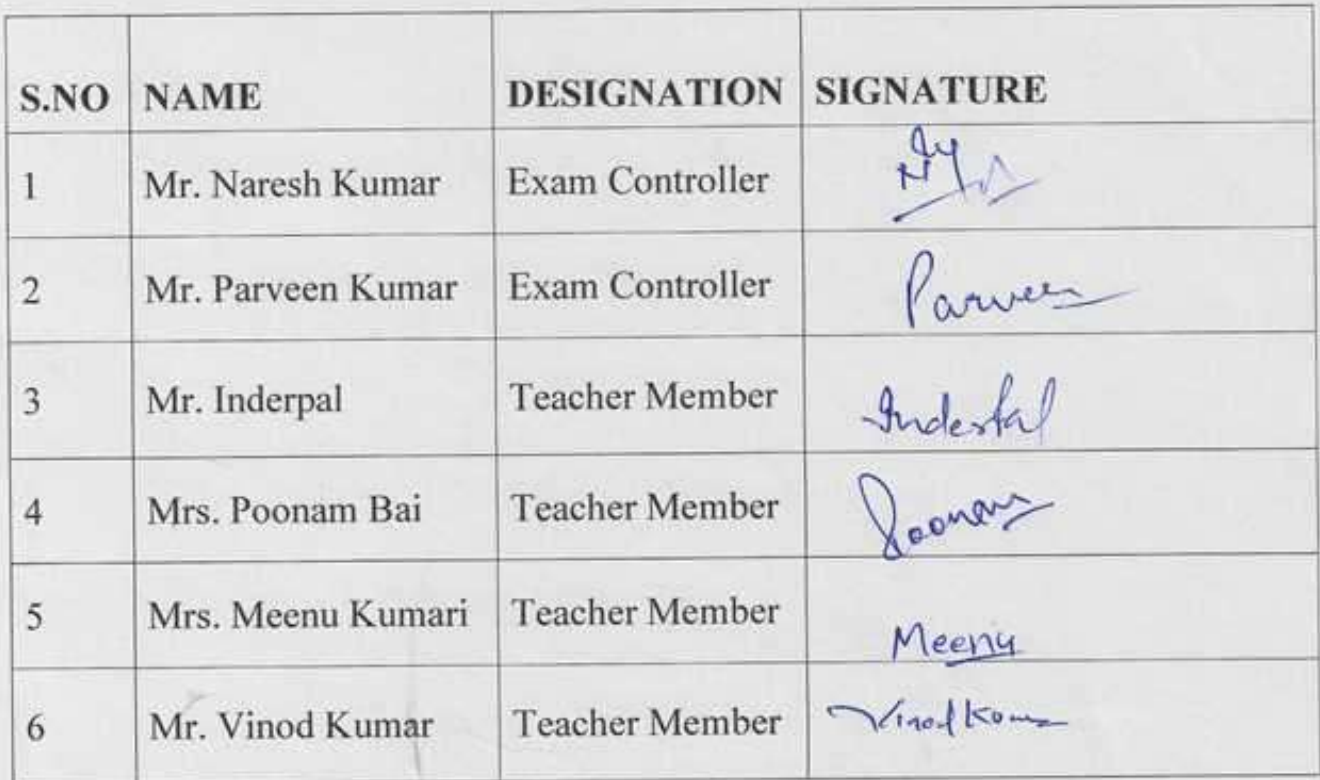 S.NO NAME DESIGNATION SIGNATURE
1 Mr. Naresh Kumar Exam Controller
2 Mr. Parveen Kumar Exam Controller Parveen
3 Mr. Inderpal Teacher Member Inderpal
4 Mrs. Poonam Bai Teacher Member Poonam
5 Mrs. Meenu Kumari Teacher Member Meenu
6 Mr. Vinod Kumar Teacher Member Vinod Kumar